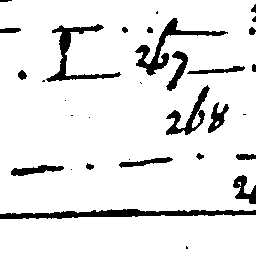 I
267
268